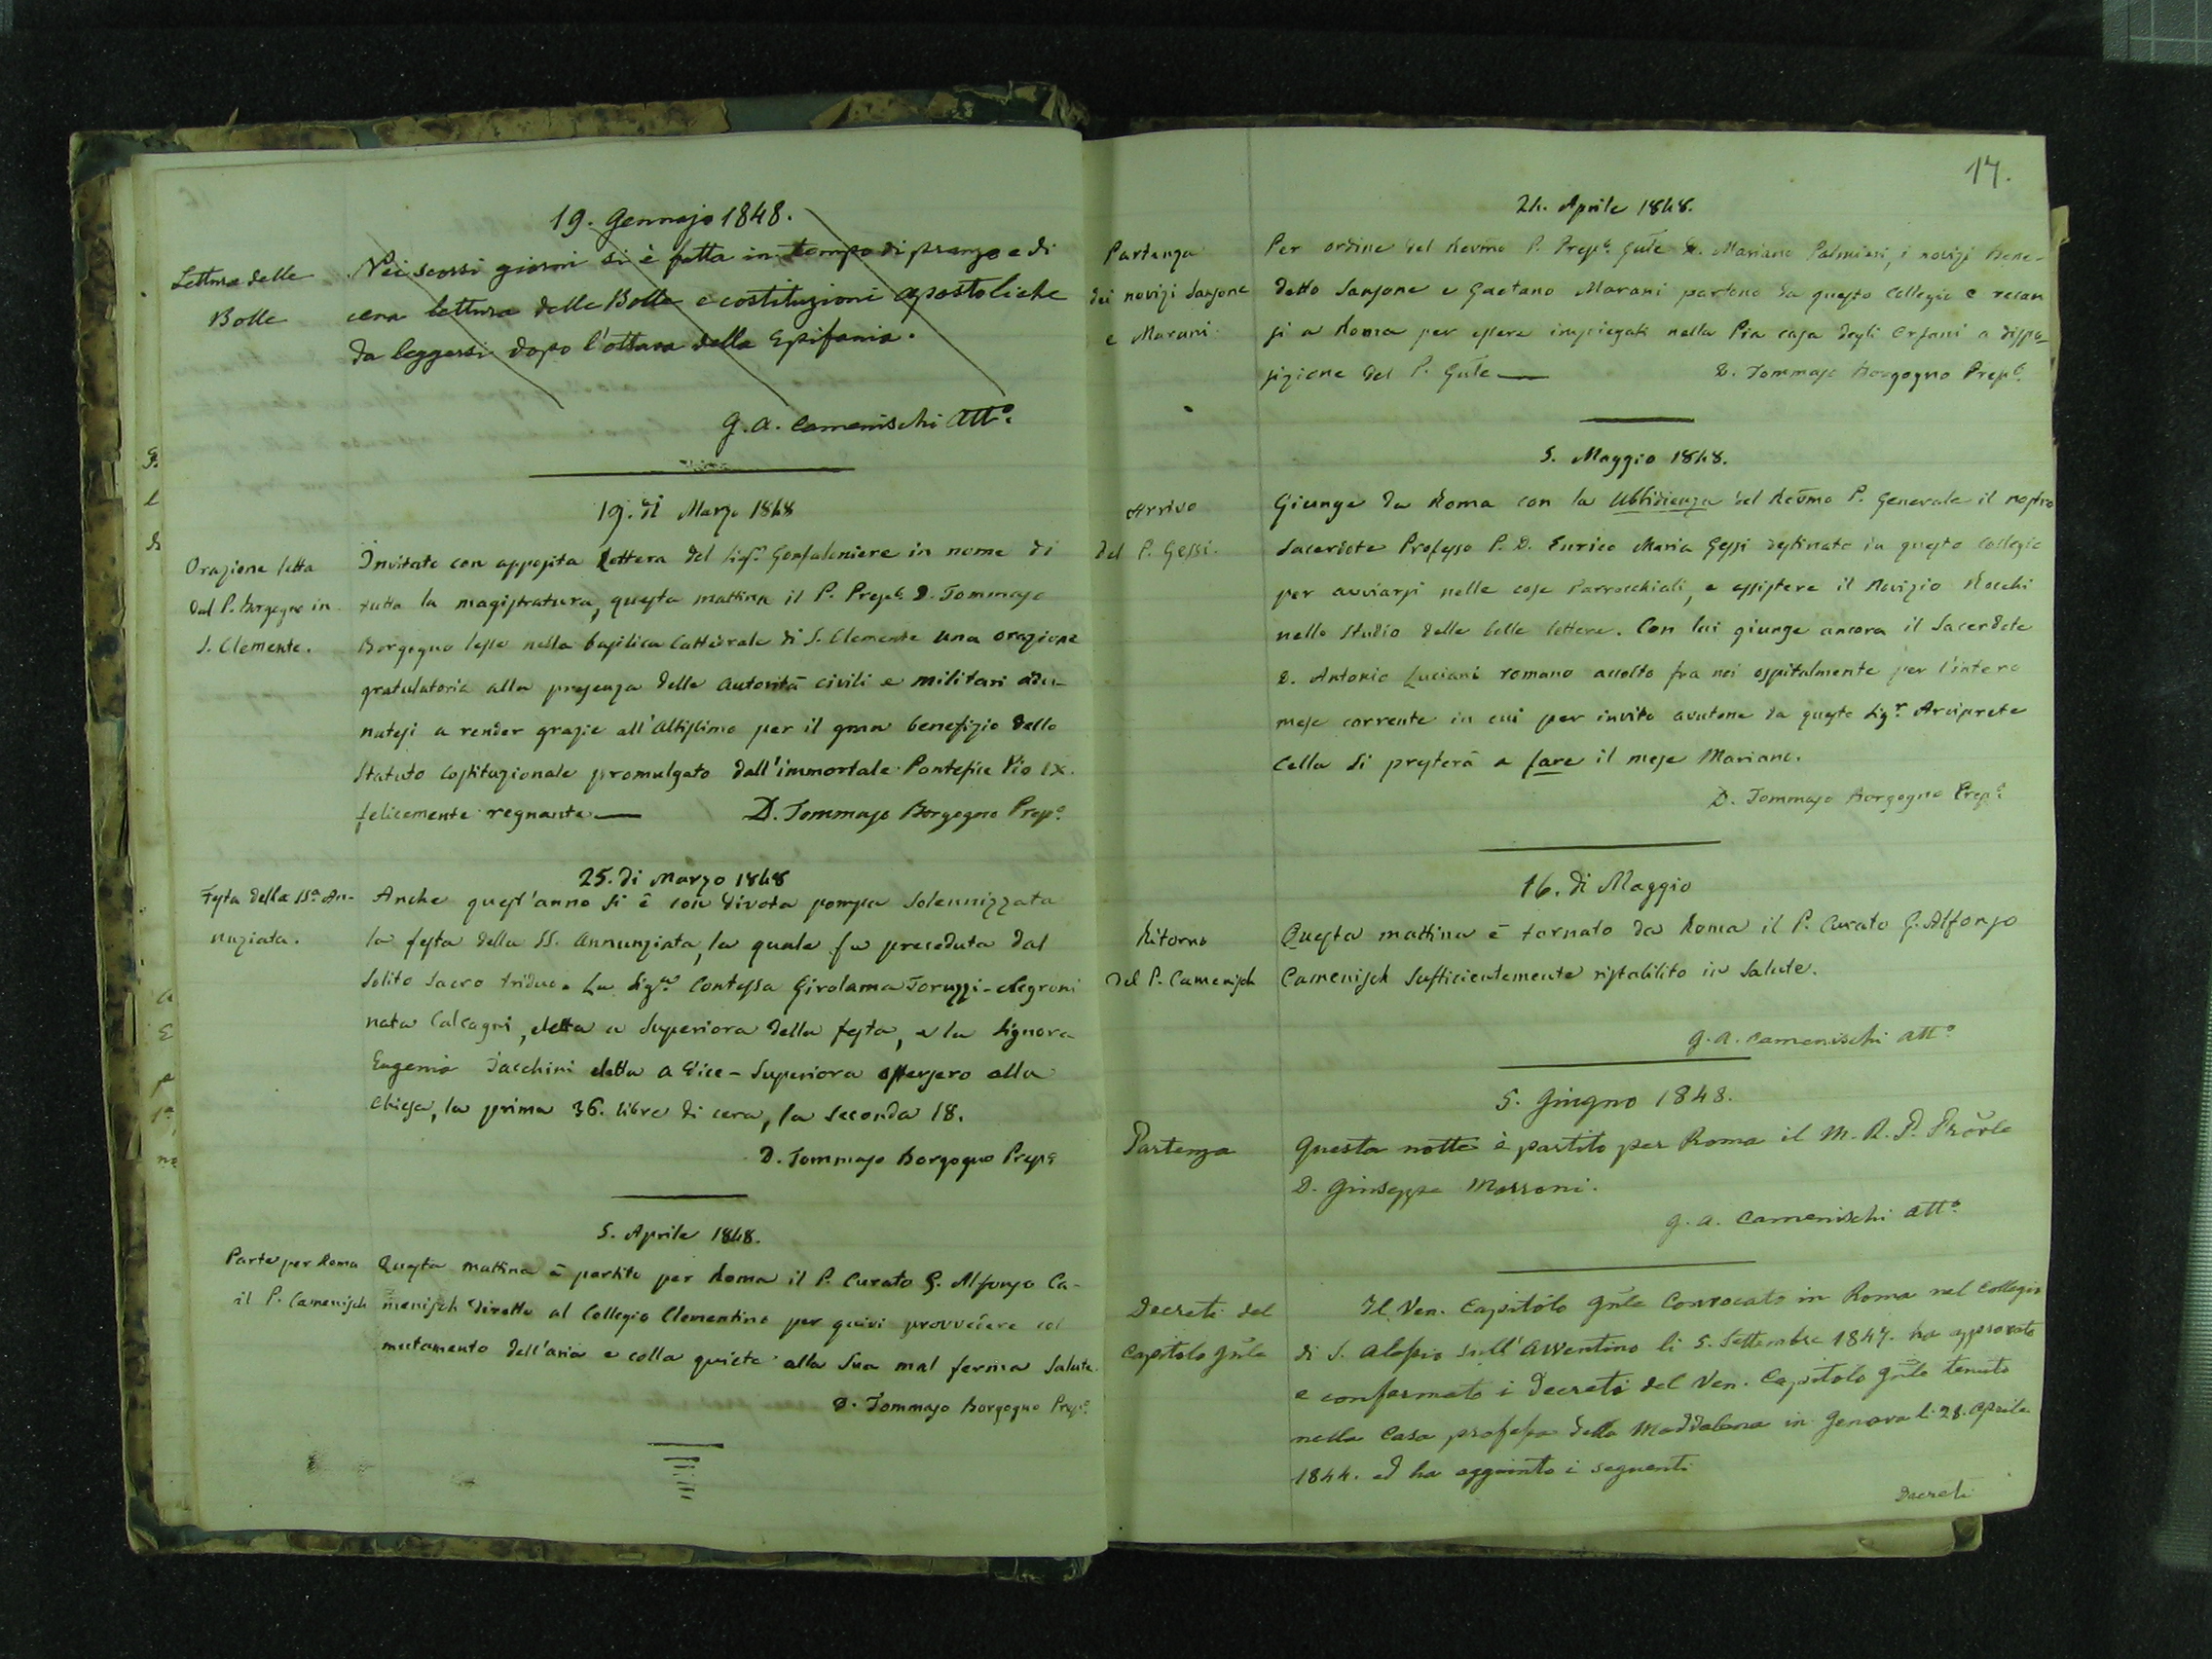 19. Gennajo 1848.
Lettura delle
Bolle
Nei scorsi giorni si è fatta in tempo di pranzo e di
cena lettura delle Bolle e costituzioni apostoliche
da leggersi dopo l'ottava della Epifania.
G. A. Camenischi Att.o
19. di Marzo 1848
Orazione letta
dal P. Borgogno in
S. Clemente.
Invitato con apposita Lettera del Sig.r Gonfaloniere in nome di
tutta la magistratura, questa mattina il P. Prep.o D. Tommaso
Borgogno lesse nella basilica Cattedrale di S. Clemente una orazione
gratulatoria alla presenza delle Autorità civili e militari adu-
natesi a render grazie all'Altissimo per il gran benefizio dello
Statuto Costituzionale promulgato dall'immortale Pontefice Pio IX.
felicemente regnante — D. Tommaso Borgogno Prep.o
25. di Marzo 1848
Festa della SS.a An-
nunziata.
Anche quest'anno si è con divota pompa solennizzata
la festa della SS. Annunziata, la quale fu preceduta dal
solito sacro triduo. La Sig.ra Contessa Girolama Toruzzi-Negroni
nata Calcagni, eletta a Superiora della festa, e la Signora
Eugenia Jacchini eletta a Vice-Superiora offersero alla
Chiesa, la prima 36. libre di cera, la seconda 18.
D. Tommaso Borgogno Prep.o
5. Aprile 1848.
Parte per Roma
il P. Camenisch
Questa mattina è partito per Roma il P. Curato G. Alfonso Ca-
menisch diretto al Collegio Clementino per quivi provvedere col
mutamento dell'aria e colla quiete alla sua mal ferma salute.
D. Tommaso Borgogno Prep.o
17.
24. Aprile 1848.
Partenza
dei novizi Sanzone
e Marani
Per ordine del Revmo P. Prep.o Gnle D. Mariano Palmieri, i novizj Bene-
detto Sanzone e Gaetano Marani partono da questo Collegio e recan
si a Roma per essere impiegati nella Pia casa degli Orfani a dispo-
sizione del P. Gnle — D. Tommaso Borgogno Prep.o
5. Maggio 1848.
Arrivo
del P. Gessi.
Giunge da Roma con la Ubbidienza del Revmo P. Generale il nostro
Sacerdote Professo P. D. Enrico Maria Gessi destinato in questo Collegio
per avviarsi nelle cose Parrocchiali, e assistere il Novizio Rocchi
nello studio delle belle lettere. Con lui giunge ancora il Sacerdote
D. Antonio Luciani romano accolto fra noi ospitalmente per l'intero
mese corrente in cui per invito avutone da questo Sig.r Arciprete
Cella si presterà a fare il mese Mariano.
D. Tommaso Borgogno Prep.o
16. di Maggio
Ritorno
del P. Camenisch
Questa mattina è tornato da Roma il P. Curato G. Alfonso
Camenisch sufficientemente ristabilito in salute.
G. A. Camenischi att.o
5. Giugno 1848.
Partenza
Questa notte è partito per Roma il M. R. P. Prõvle
D. Giuseppe Massoni.
G. A. Camenischi att.o
Decreti del
Capitolo gnle
Il Ven. Capitolo gnle Convocato in Roma nel Collegio
di S. Alessio sull'Avventino li 5. Settembre 1847. ha approvato
e confermato i Decreti del Ven. Capitolo gnle tenuto
nella Casa professa della Maddalena in Genova li 28. Aprile
1844. ed ha aggiunto i seguenti
Decreti